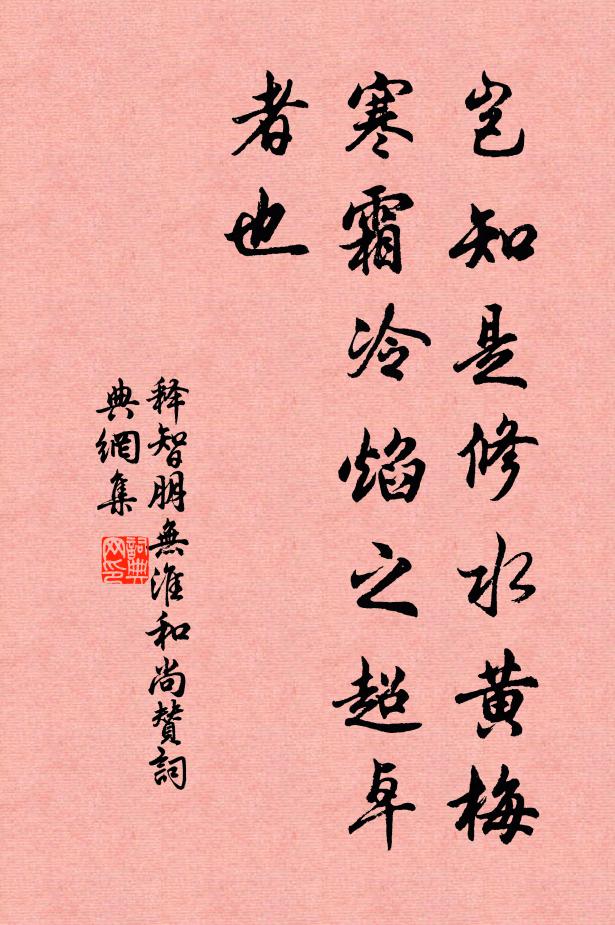 岂知是修水黄梅
寒霜冷焰之超卓
者也
释智朋無淮和尚赞詞
典網集
詞典
网印